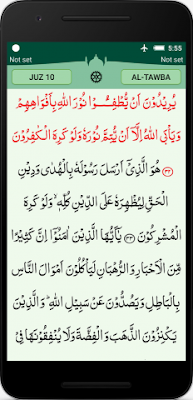 5:55
Not set Not set
JUZ 10 AL-TAWBA
يُرِيۡدُوۡنَ اَنۡ يُّطۡفِــُٔوۡا نُوۡرَ اللّٰهِ بِاَفۡوَاهِهِمۡ
وَيَاۡبَى اللّٰهُ اِلَّاۤ اَنۡ يُّتِمَّ نُوۡرَهٗ وَلَوۡ كَرِهَ الۡكٰفِرُوۡنَ
﴿۳۲﴾ هُوَ الَّذِىۡۤ اَرۡسَلَ رَسُوۡلَهٗ بِالۡهُدٰى وَدِيۡنِ
الۡحَـقِّ لِيُظۡهِرَهٗ عَلَى الدِّيۡنِ كُلِّهٖۙ وَلَوۡ كَرِهَ
الۡمُشۡرِكُوۡنَ ﴿۳۳﴾ يٰۤاَيُّهَا الَّذِيۡنَ اٰمَنُوۡۤا اِنَّ كَثِيۡرًا
مِّنَ الۡاَحۡبَارِ وَالرُّهۡبَانِ لَيَاۡكُلُوۡنَ اَمۡوَالَ النَّاسِ
بِالۡبَاطِلِ وَيَصُدُّوۡنَ عَنۡ سَبِيۡلِ اللّٰهِؕ وَالَّذِيۡنَ
يَكۡنِزُوۡنَ الذَّهَبَ وَالۡفِضَّةَ وَلَا يُنۡفِقُوۡنَهَا فِىۡ